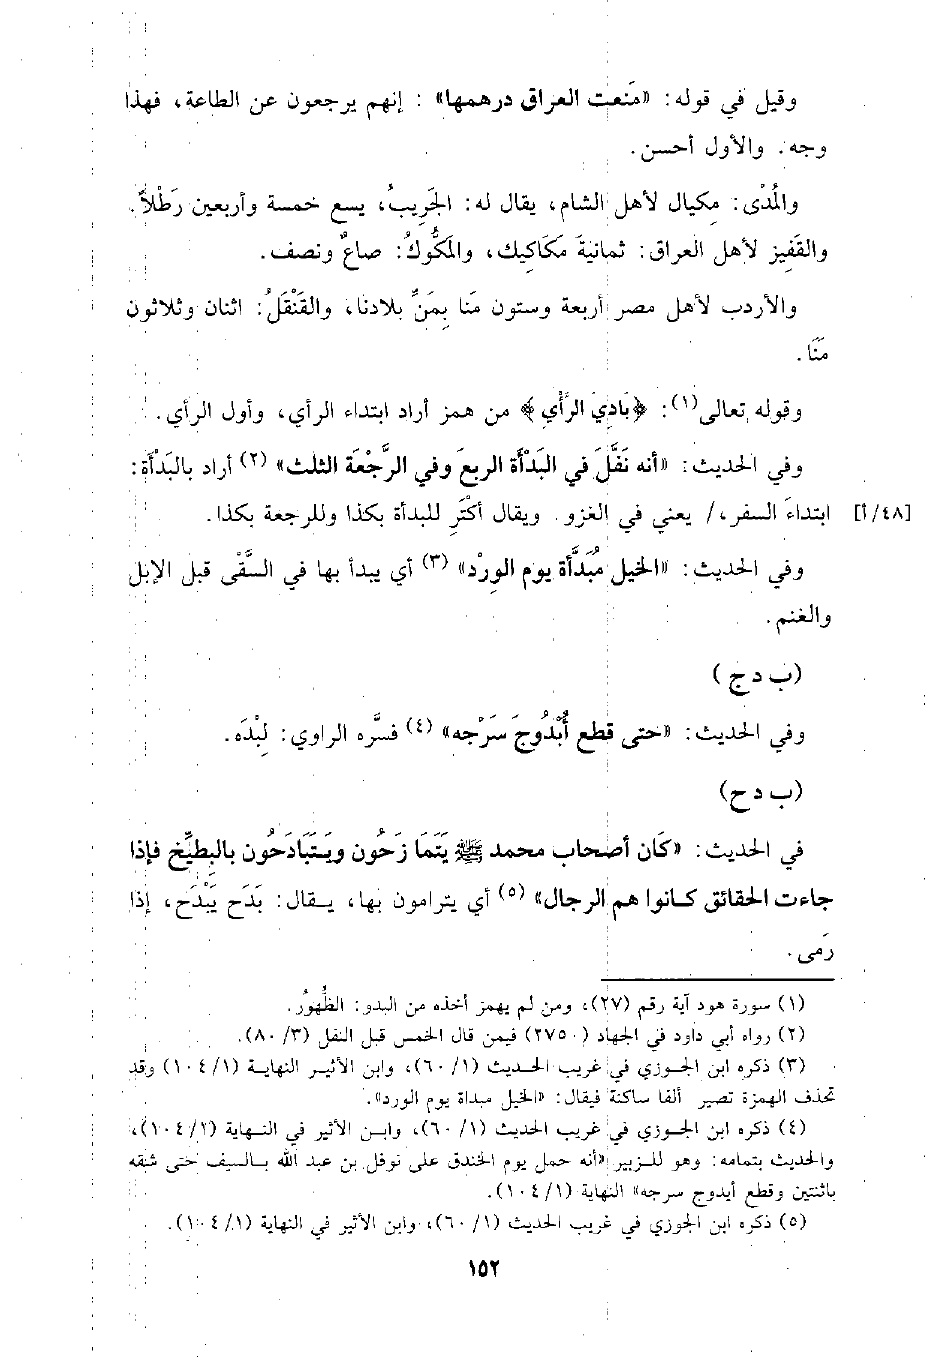 وقيل في قوله: «مَنعت العراق درهمها» : إنهم يرجعون عن الطاعة، فهذا
وجه. والأول أحسن.
والمُدْى: مكيال لأهل الشام، يقال له: الجَرِيبُ، يسع خمسة وأربعين رَطْلاً.
والقَفِيز لأهل العراق: ثمانيةَ مَكَاكيك، والمَكُّوكُ: صاعٌ ونصف.
والأردب لأهل مصر أربعة وستون مَنا بِمَنِّ بلادنا، والقَنْقَلُ: اثنان وثلاثون
مَنَا.
وقوله تعالى(١): ﴿بَادِيَ الرَّأْيِ﴾ من همز أراد ابتداء الرأي، وأول الرأي.
وفي الحديث: «أنه نَفَّلَ في البَدْأة الربعَ وفي الرَّجْعَة الثلث» (٢) أراد بالبَدْأة:
[٤٨/أ] ابتداءَ السفر،/ يعني في الغزو. ويقال أكْتَرِ للبدأة بكذا وللرجعة بكذا.
وفي الحديث: «الخيل مُبَدَّأة يوم الوِرْد» (٣) أي يبدأ بها في السَّقْى قبل الإبل
والغنم.
(ب د ج)
وفي الحديث: «حتى قطع أُبْدُوجَ سَرْجه» (٤) فسَّره الراوي: لِبْدَه.
(ب د ح)
في الحديث: «كَان أصحاب محمد ﷺ يَتَمازَحُون ويَتَبَادَحُون بالبِطيِّخ فإذا
جاءت الحقائق كانوا هم الرجال» (٥) أي يترامون بها، يقال: بَدَح يَبْدَح، إذا
رَمى.
(١) سورة هود آية رقم (٢٧)، ومن لم يهمز أخذه من البدو: الظُّهُورُ.
(٢) رواه أبي داود في الجهاد (٢٧٥٠) فيمن قال الخمس قبل النفل (٣/ ٨٠).
(٣) ذكره ابن الجوزي في غريب الحديث (١/ ٦٠)، وابن الأثير النهاية (١/ ١٠٤) وقد
تحذف الهمزة تصير ألفا ساكنة فيقال: «الخيل مبداة يوم الورد».
(٤) ذكره ابن الجوزي في غريب الحديث (١/ ٦٠)، وابن الأثير في النهاية (١/ ١٠٤)،
والحديث بتمامه: وهو للزبير «أنه حمل يوم الخندق على نوفل بن عبد الله بالسيف حتى شقه
باثنتين وقطع أبدوج سرجه» النهاية (١/ ١٠٤).
(٥) ذكره ابن الجوزي في غريب الحديث (١/ ٦٠)، وابن الأثير في النهاية (١/ ١٠٤).
١٥٢